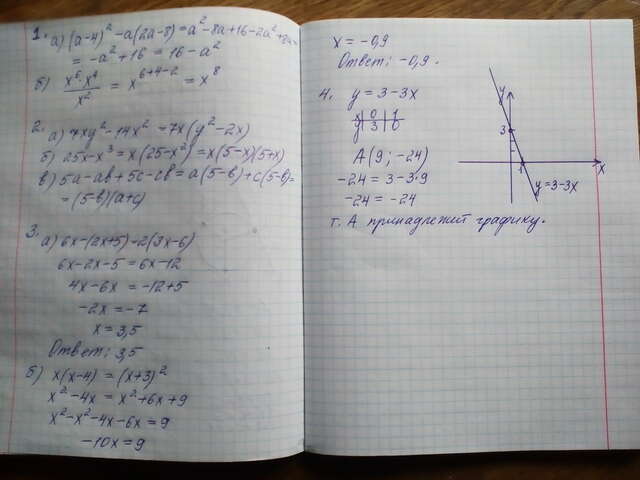 1. а) (a-4)² - a(2a-8) = a² - 8a + 16 - 2a² + 8a =
= -a² + 16 = 16 - a²
б) x⁶·x⁴ / x² = x⁶⁺⁴⁻² = x⁸
2. а) 7xy² - 14x² = 7x(y² - 2x)
б) 25x - x³ = x(25 - x²) = x(5-x)(5+x)
в) 5a - ab + 5c - cb = a(5-b) + c(5-b) =
= (5-b)(a+c)
3. а) 6x - (2x+5) = 2(3x-6)
6x - 2x - 5 = 6x - 12
4x - 6x = -12 + 5
-2x = -7
x = 3,5
Ответ: 3,5
б) x(x-4) = (x+3)²
x² - 4x = x² + 6x + 9
x² - x² - 4x - 6x = 9
-10x = 9
x = -0,9
Ответ: -0,9.
4. y = 3 - 3x
x 0 1
y 3 0
A(9; -24)
-24 = 3 - 3·9
-24 = -24
т. A принадлежит графику.
y
3
1
x
y = 3 - 3x